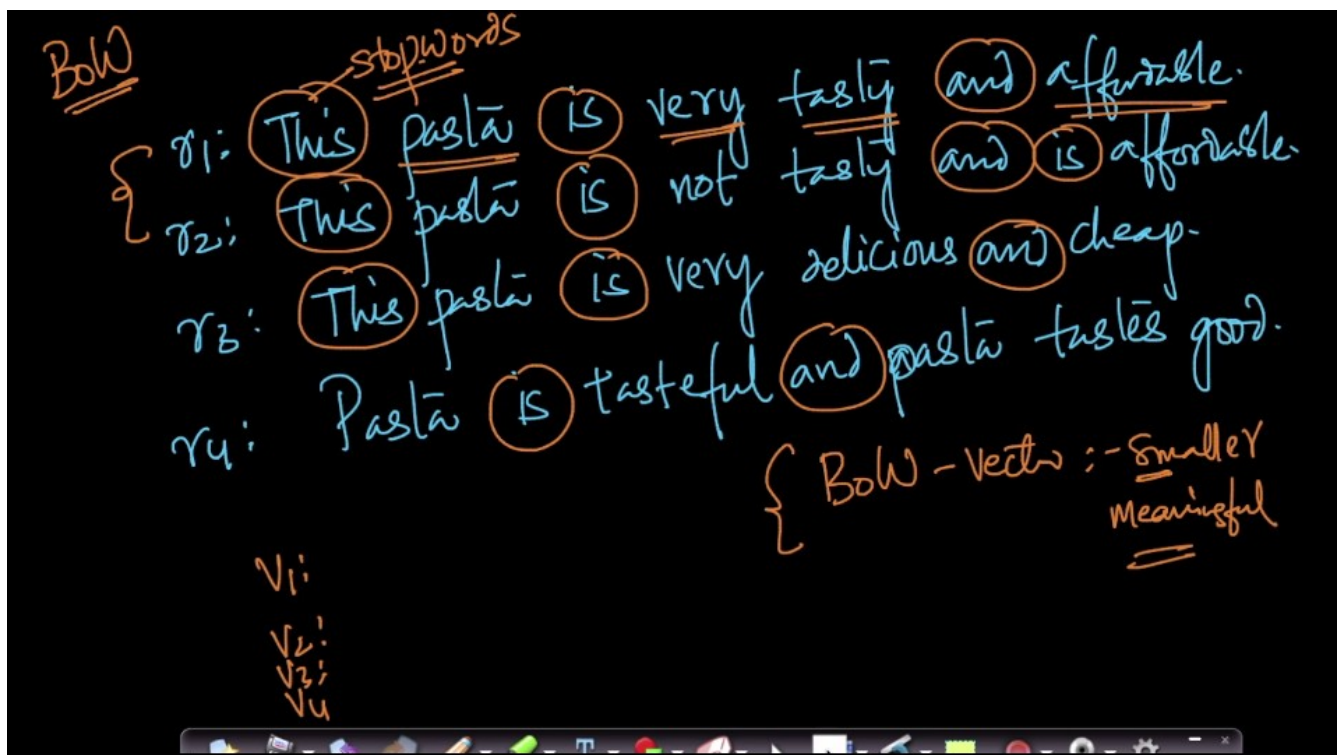 BoW
stopwords
r1: This pasta is very tasty and affordable.
r2: This pasta is not tasty and is affordable.
r3: This pasta is very delicious and cheap.
r4: Pasta is tasteful and pasta tastes good.
BoW - Vector :- Smaller
Meaningful
V1:
V2:
V3:
V4